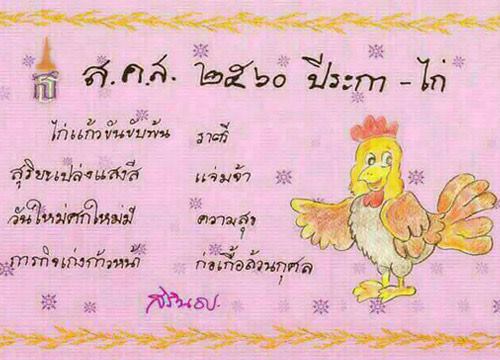 ส.ค.ส. ๒๕๖๐ ปีระกา - ไก่
ไก่แก้วขันขับพ้น ราศรี
สุริยะเปล่งแสงสี แจ่มจ้า
วันใหม่ศกใหม่มี ความสุข
ภารกิจเก่งก้าวหน้า ก่อเกื้อล้วนกุศล
สิรินธร